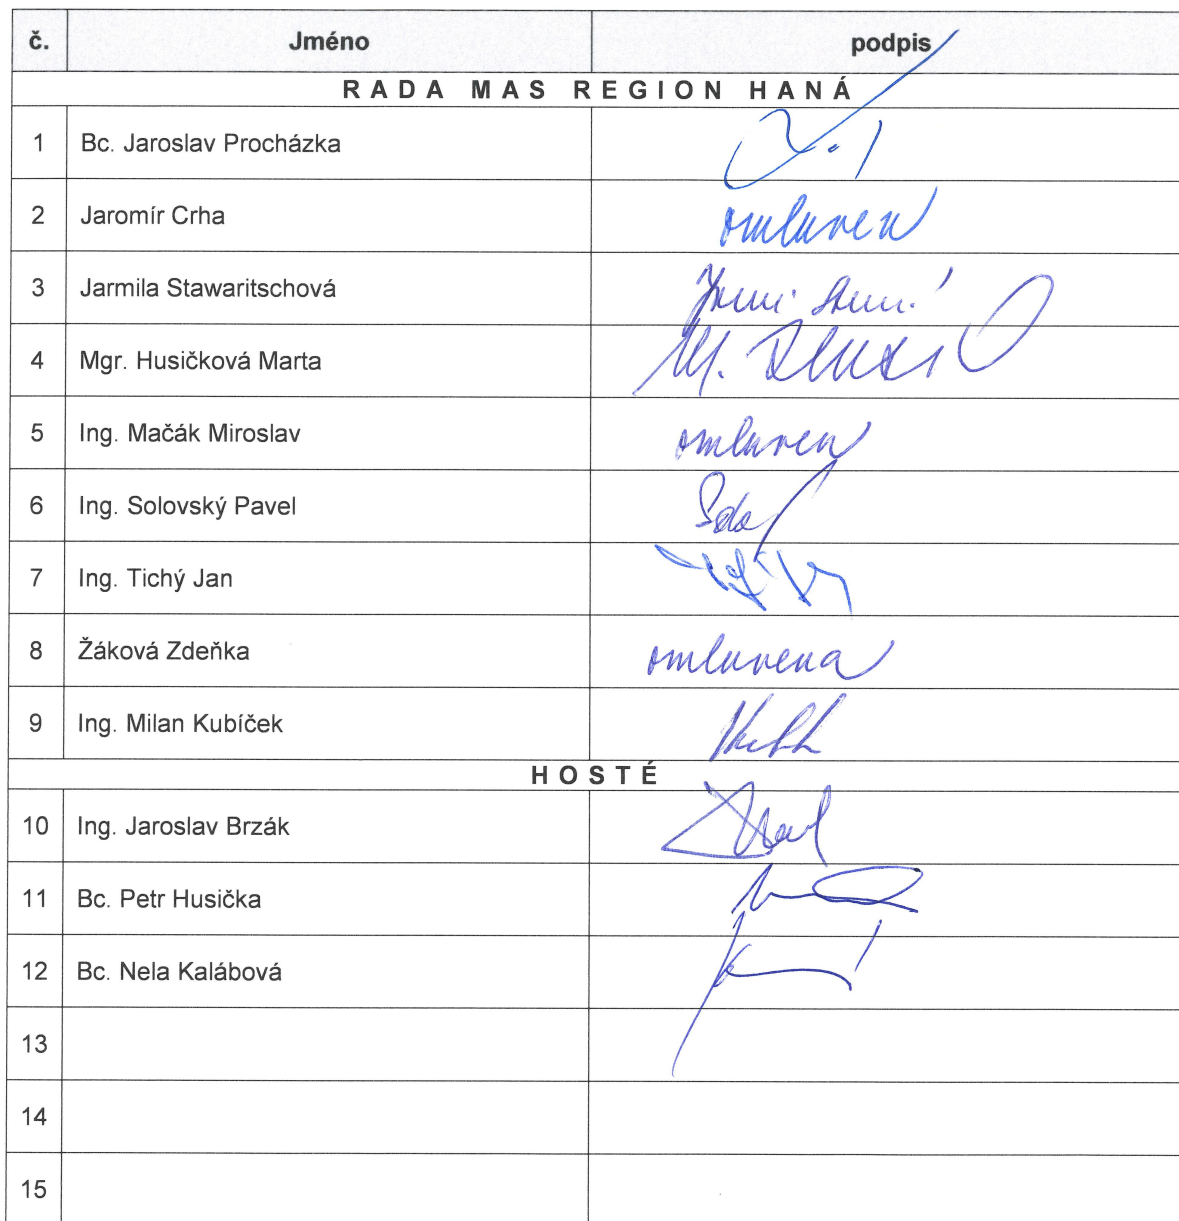 č. Jméno podpis
RADA MAS REGION HANÁ
1 Bc. Jaroslav Procházka
2 Jaromír Crha omluven
3 Jarmila Stawaritschová
4 Mgr. Husičková Marta M.
5 Ing. Mačák Miroslav omluven
6 Ing. Solovský Pavel
7 Ing. Tichý Jan
8 Žáková Zdeňka omluvena
9 Ing. Milan Kubíček
HOSTÉ
10 Ing. Jaroslav Brzák
11 Bc. Petr Husička
12 Bc. Nela Kalábová
13
14
15